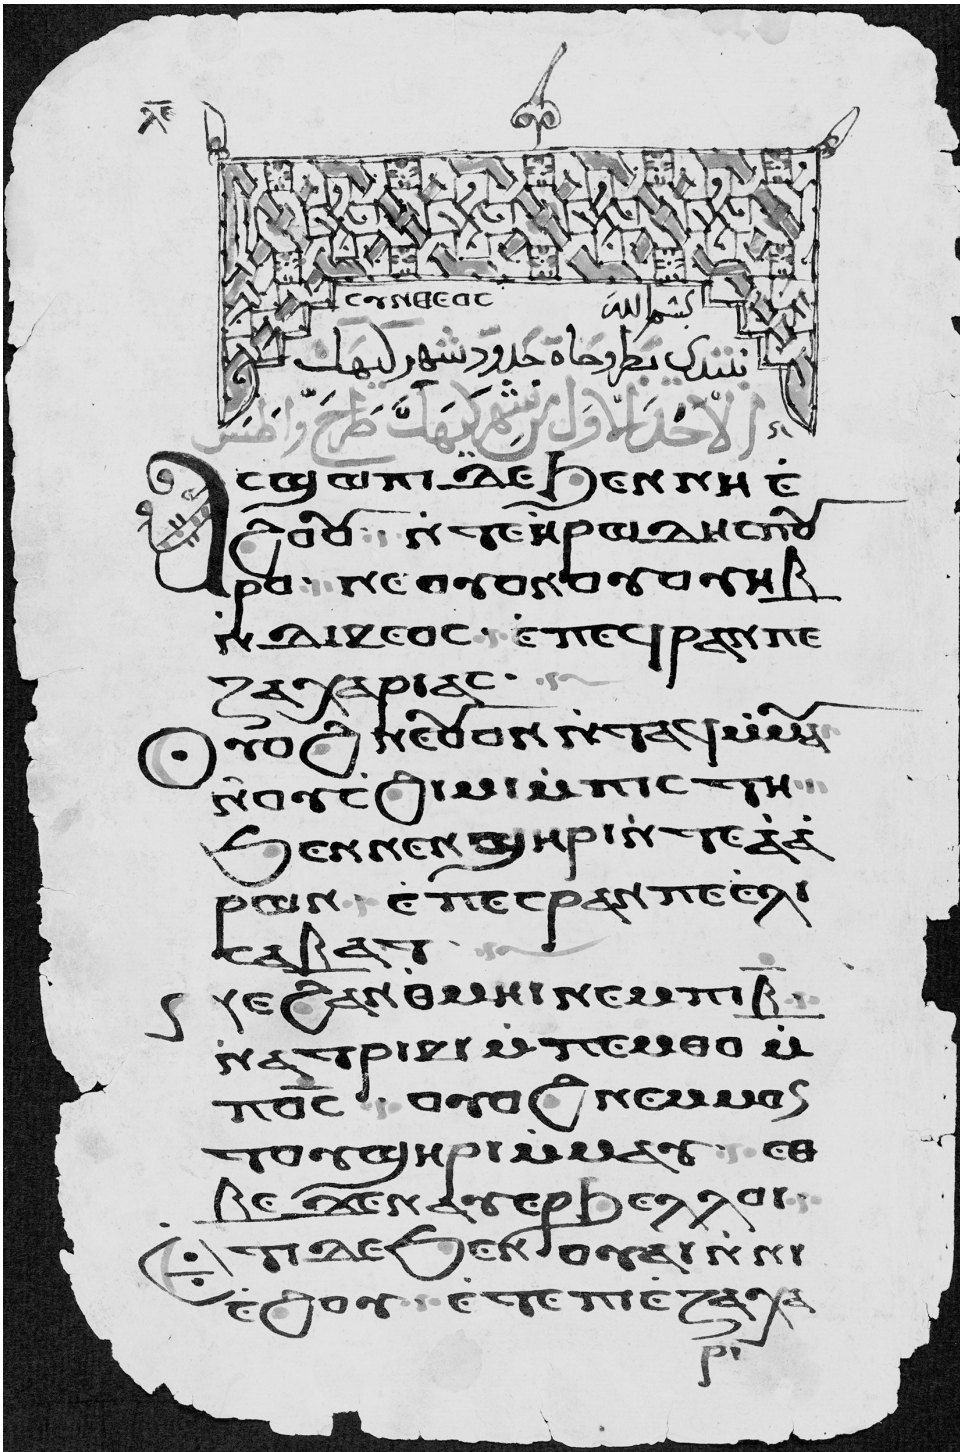 ⲗⲉ
ⲥⲩⲛⲑⲉⲟⲥ بسم الله
نبتدي بطروحاة حدود شهر كيهك
الاحد الاول من شهر كيهك طرح واطس
Ⲁⲥϣⲱⲡⲓ ⲇⲉ ϧⲉⲛ ⲛⲏ ⲉ̇
ϩⲟⲟⲩ ⲛ̇ⲧⲉ ⲏ̇ⲣⲱⲇⲏⲥ ⲡⲟⲩ
ⲣⲟ ⲛⲉ ⲟⲩⲟⲛ ⲟⲩⲟⲩⲏⲃ
ⲛ̇ⲇⲓⲕⲉⲟⲥ ⲉ̇ⲡⲉϥⲣⲁⲛ ⲡⲉ
ⲍⲁⲭⲁⲣⲓⲁⲥ
Ⲟⲩⲟϩ ⲛⲉ ⲟⲩⲟⲛ ⲛ̇ⲧⲁϥ ⲙ̇ⲙⲁⲩ
ⲛ̇ⲟⲩⲥϩ̇ⲓⲙⲓ ⲙ̇ⲡⲓⲥⲧⲏ
ϧⲉⲛ ⲛⲉⲛϣⲏⲣⲓ ⲛ̇ⲧⲉ ⲁ̇ⲁ̇
ⲣⲱⲛ ⲉ̇ⲡⲉⲥⲣⲁⲛ ⲡⲉ ⲉ̇ⲗⲓ
ⲥⲁⲃⲁⲧ
ϫⲉ ϩⲁⲛⲑ̇ⲙⲏⲓ ⲛⲉ ⲙⲡⲓⲃ̅
ⲛ̇ⲁⲧⲣⲓⲕⲓ ⲙ̇ⲡⲉⲙⲑⲟ ⲙ̇
ⲡⲟ̅ⲥ̅ ⲟⲩⲟϩ ⲛⲉⲙⲙⲟⲛ
ⲧⲟⲩϣⲏⲣⲓ ⲙ̇ⲙⲁⲩ ⲉⲑ
ⲃⲉ ϫⲉ ⲛⲁⲩⲉⲣϧⲉⲗⲗⲟⲓ
Ⲉⲧⲓ ⲇⲉ ϧⲉⲛ ⲟⲩⲁⲓ ⲛ̇ⲛⲓ
ⲉ̇ϩⲟⲩ ⲉ̇ⲧⲉⲡⲓⲉ̇ ⲍⲁⲭⲁ
ⲣⲓ